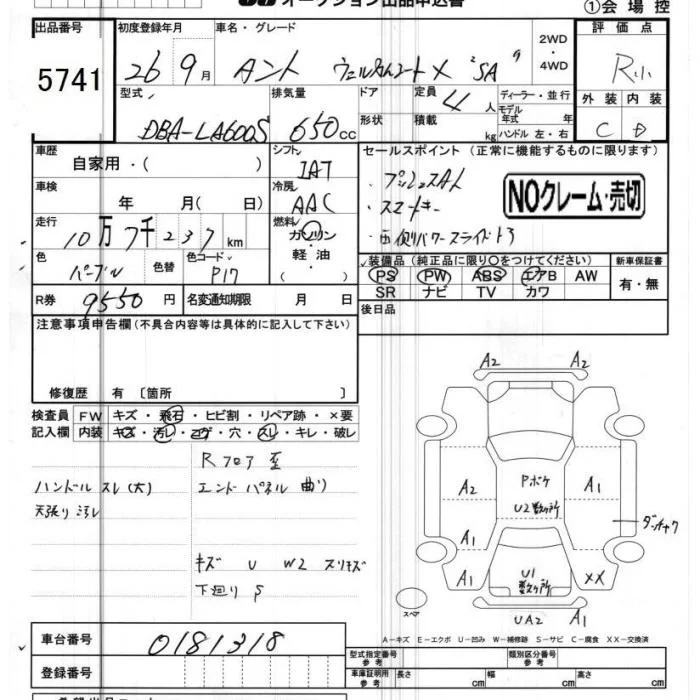 オークション出品申込書
①会場控
出品番号 初度登録年月 車名・グレード 2WD・4WD 評価点
5741 26 9月 タント ウェルカムシート X "SA" R小
型式 排気量 ドア 定員 ディーラー・並行 外装 内装
DBA-LA600S 650cc 形状 積載 4人 モデル年式 年 C D
kg ハンドル 左・右
車歴 シフト セールスポイント (正常に機能するものに限ります)
自家用・( ) IAT
・プッシュスタート
車検 冷房 ・スマートキー NOクレーム・売切
年 月( 日) AAC
走行 燃料 ・両側パワースライドドア
10万7千237km ガソリン・軽油・( )
色 色替 色コード 装備品(純正品に限り○をつけてください) 新車保証書
パープル P17 PS PW ABS エアB AW 有・無
SR ナビ TV カワ
R券 9550円 名変通知期限 月 日 後日品
注意事項申告欄(不具合内容等は具体的に記入して下さい)
修復歴 有 〔箇所 〕
検査員 FW キズ・飛石・ヒビ割・リペア跡・×要
記入欄 内装 キズ・汚レ・コゲ・穴・スレ・キレ・破レ
Rフロア 歪
ハンドル スレ(大) エンドパネル 曲り
天張り汚レ
キズ U W2 スリキズ
下廻り S
A2 A2
A2 Pボケ A1
U2数ヶ所
A1 ダッチャク
A1 U1数ヶ所 XX
スペア UA2 A1
A-キズ E-エクボ U-凹み W-補修跡 S-サビ C-腐食 XX-交換済
車台番号 0181318
型式指定番号 参考 類別区分番号 参考
登録番号 車庫証明用 参考 長さ cm 幅 cm 高さ cm